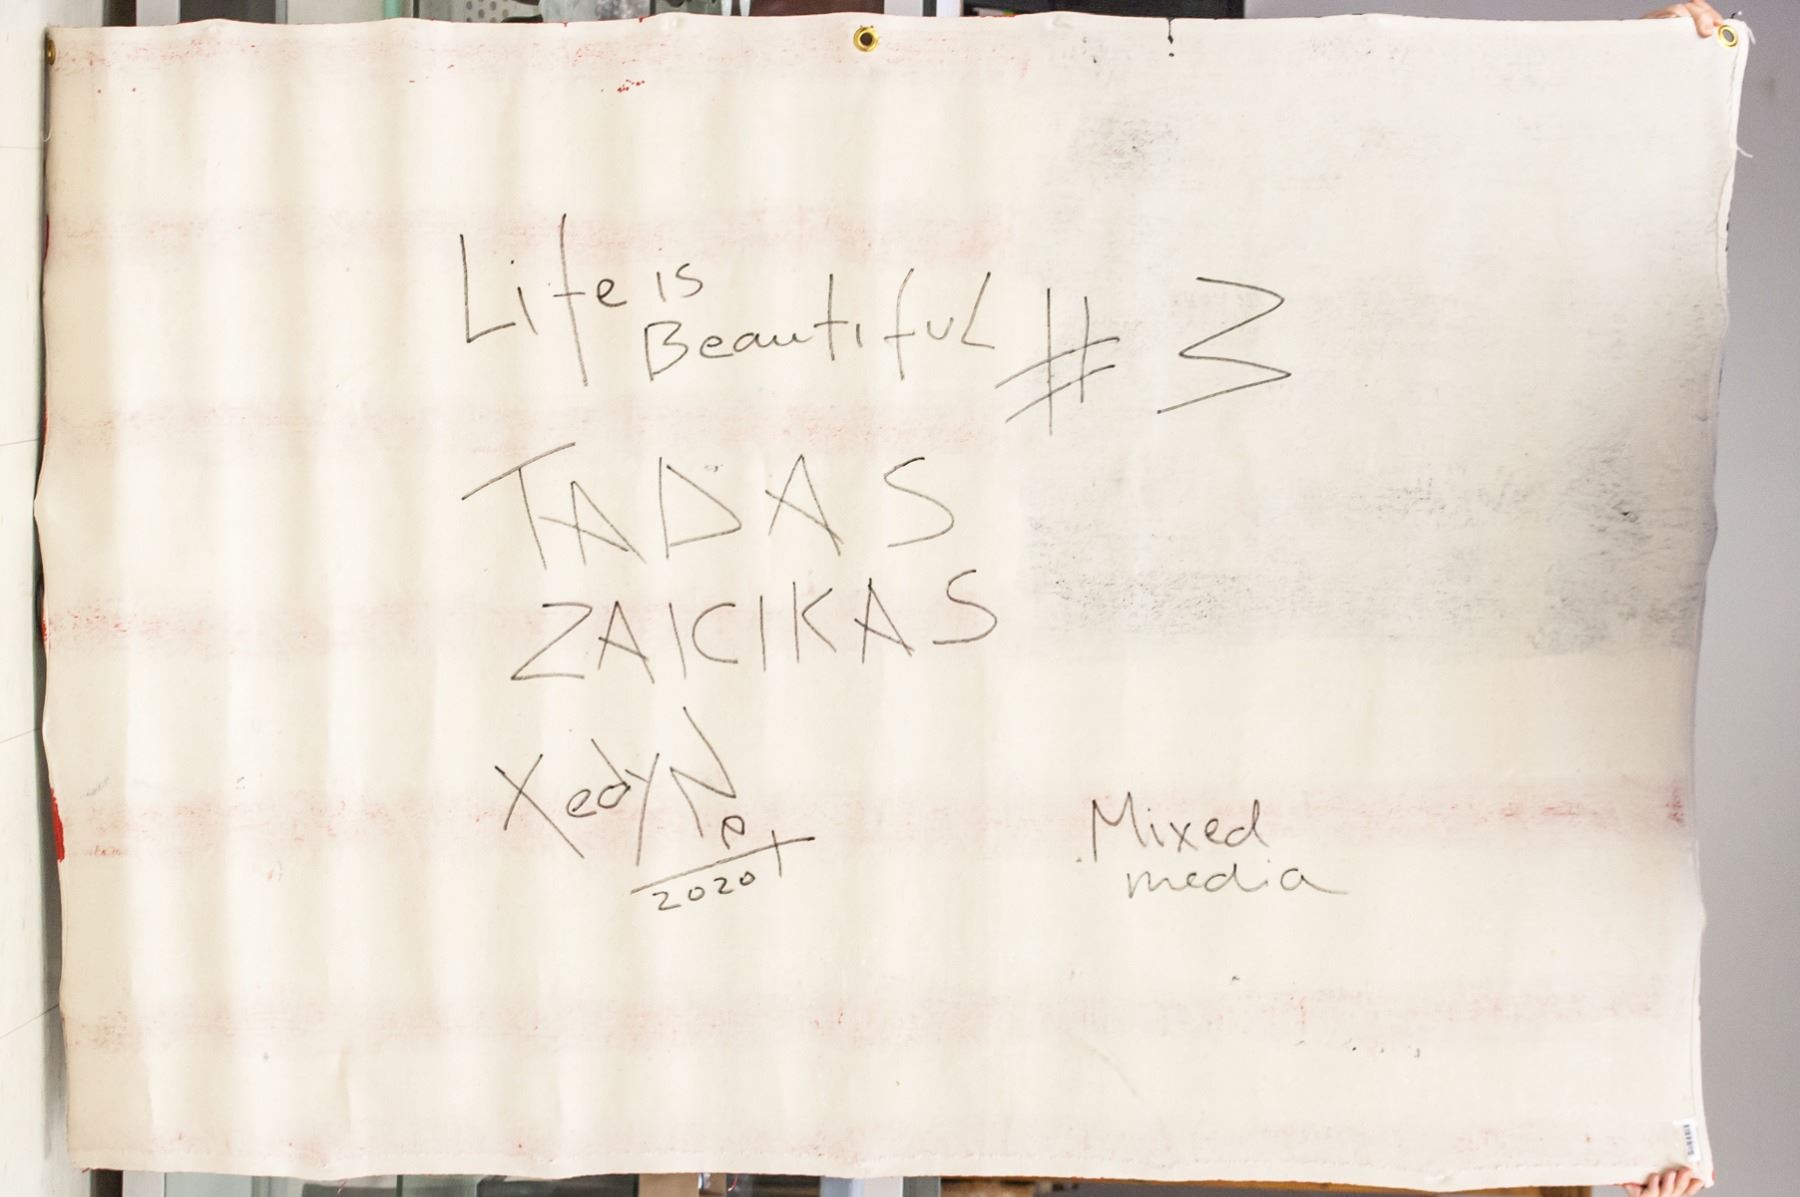 Life is
Beautiful # 3
TADAS
ZAICIKAS
XedyNet
2020
Mixed
media